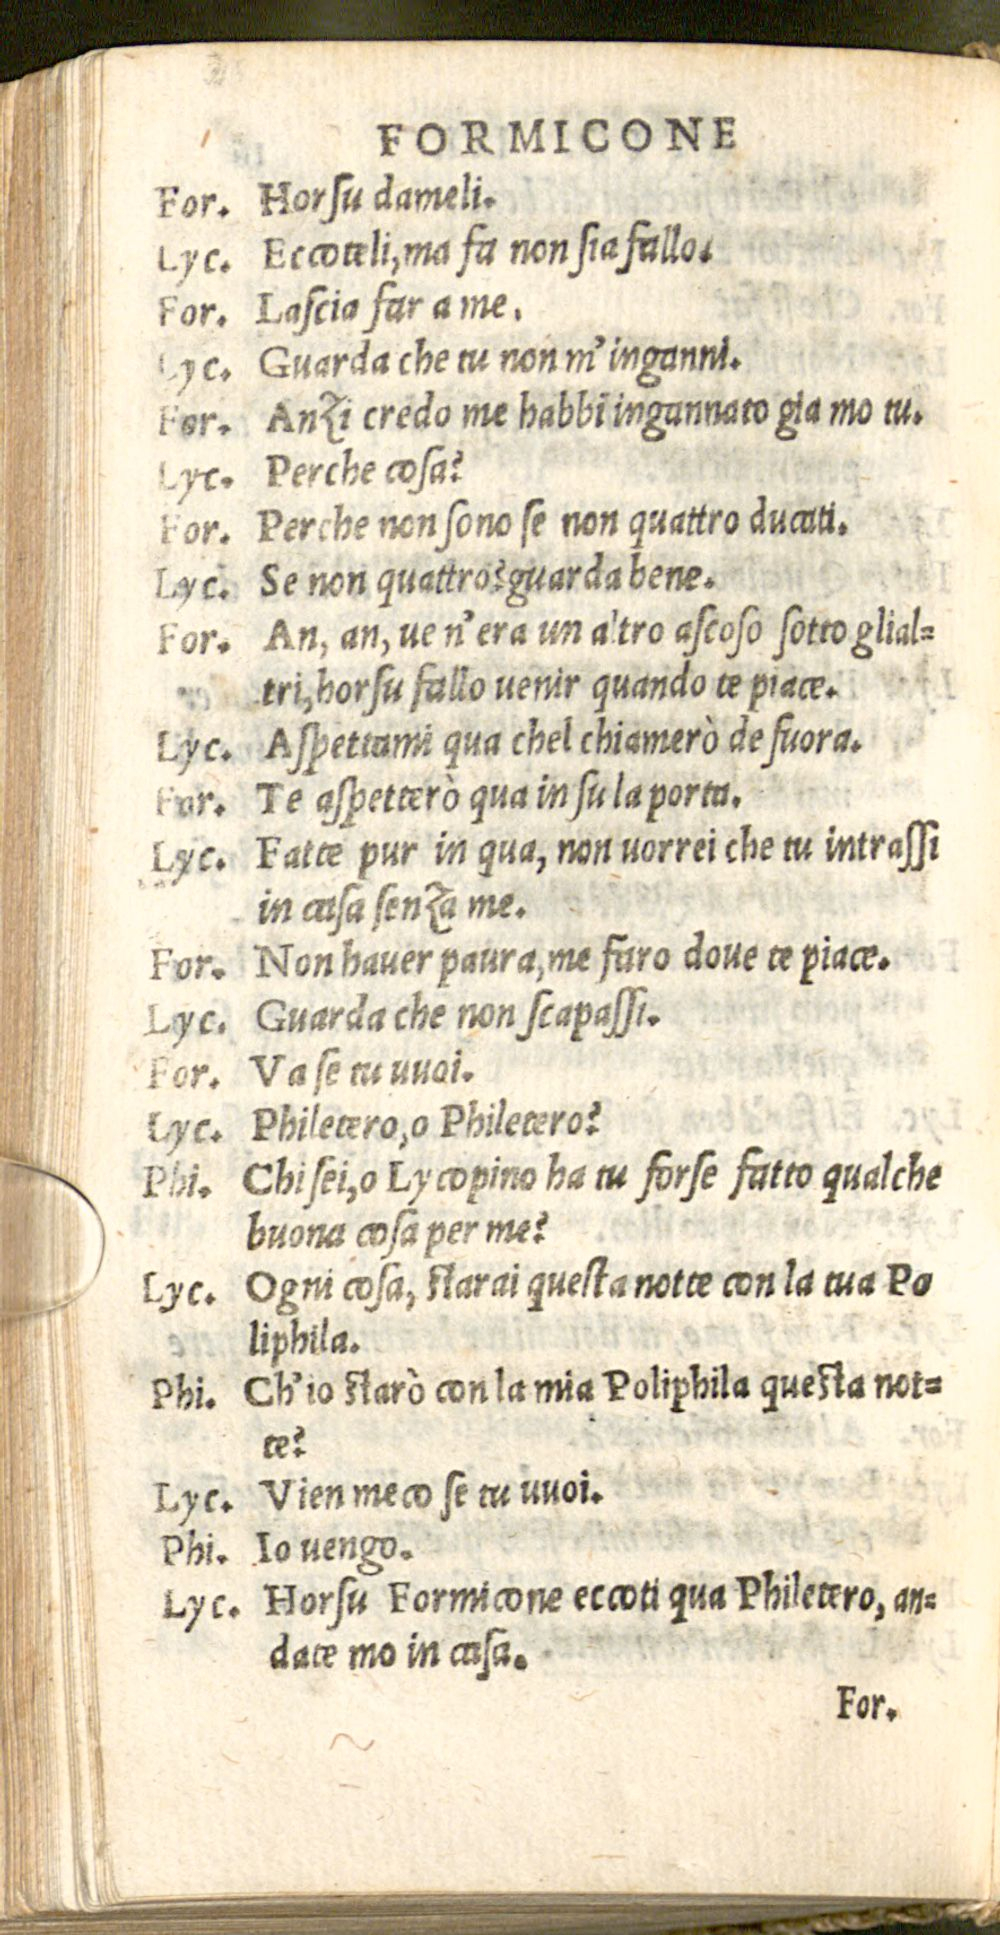 FORMICONE
For. Horſu dameli.
Lyc. Eccoteli, ma fa non ſia fallo.
For. Laſcia far a me.
Lyc. Guarda che tu non m' inganni.
For. Anzi credo me habbi ingannato gia mo tu.
Lyc. Perche coſa?
For. Perche non ſono ſe non quattro ducati.
Lyc. Se non quattro? guarda bene.
For. An, an, ue n' era un altro aſcoſo ſotto glial=
tri, horſu fallo uenir quando te piace.
Lyc. Aſpettami qua chel chiamerò de fuora.
For. Te aſpetterò qua in ſu la porta.
Lyc. Fatte pur in qua, non uorrei che tu intraſſi
in caſa ſenza me.
For. Non hauer paura, me faro doue te piace.
Lyc. Guarda che non ſcapaſſi.
For. Va ſe tu uuoi.
Lyc. Philetero, o Philetero?
Phi. Chi ſei, o Lycopino ha tu forſe fatto qualche
buona coſa per me?
Lyc. Ogni coſa, ſtarai queſta notte con la tua Po
liphila.
Phi. Ch' io ſtarò con la mia Poliphila queſta not=
te?
Lyc. Vien meco ſe tu uuoi.
Phi. Io uengo.
Lyc. Horſu Formicone eccoti qua Philetero, an=
date mo in caſa.
For.